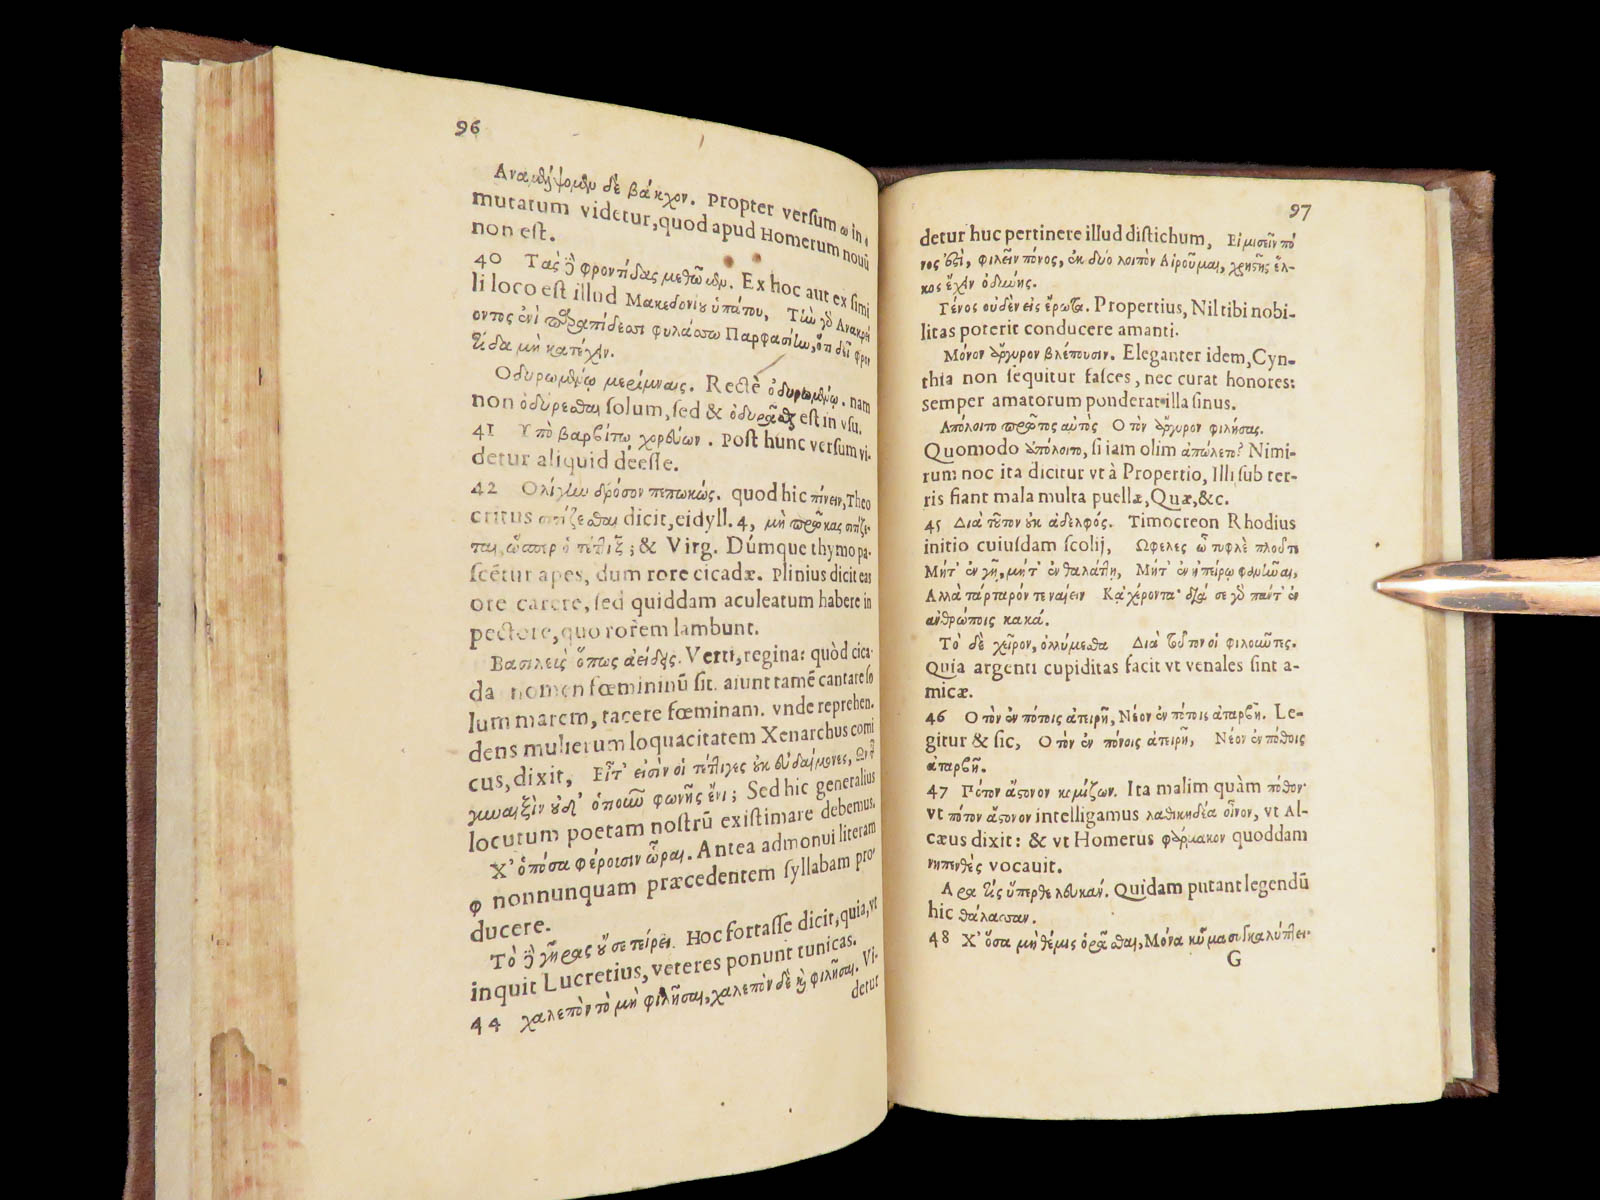 96
Αναμέλψομεν δὲ βάκχον. Propter verſum ω in ο
mutatum videtur, quod apud Homerum nouũ
non eſt.
40 Τὰς ἢ φροντίδας μεθῶμεν. Ex hoc aut ex ſimi
li loco eſt illud Μακεδονίου ὑπάτου, Τὴν γὸ Ανακρεί
οντος ἐνὶ πραπίδεσσι φυλάσσω Παρφασίην, ὅτι δεῖ φρον
τίδα μὴ κατέχειν.
Οδυρωμένῳ μερίμναις. Rectè ὀδυρωμένῳ. nam
non ὀδύρεσθαι ſolum, ſed & ὀδυρᾶσθαι eſt in vſu.
41 Υπὸ βαρβίτῳ χορεύων. Poſt hunc verſum vi-
detur aliquid deeſſe.
42 Ολίγην δρόσον πεπωκώς. quod hic πίνειν, Theo
critus σιτίζεσθαι dicit, eidyll. 4, μὴ πρῶκας σιτίζε-
ται, ὥσπερ ὁ τέττιξ; & Virg. Dúmque thymo pa-
ſcẽtur apes, dum rore cicadæ. Plinius dicit eas
ore carere, ſed quiddam aculeatum habere in
pectore, quo rorem lambunt.
Βασιλεὺς ὅπως ἀείδεις. Verti, regina: quòd cica-
da nomen fœmininũ ſit. aiunt tamẽ cantare ſo
lum marem, tacere fœminam. vnde reprehen-
dens mulierum loquacitatem Xenarchus comi
cus, dixit, Εἶτ' εἰσὶν οἱ τέττιγες οὐκ εὐδαίμονες, Ων ταῖς
γυναιξὶν οὐδ' ὁποιοῦν φωνῆς ἔνι; Sed hic generalius
locutum poetam noſtrũ exiſtimare debemus.
Χ' ὁπόσα φέρουσιν ὧραι. Antea admonui literam
φ nonnunquam præcedentem ſyllabam pro-
ducere.
Τὸ ἢ γῆρας οὔ σε τείρει. Hoc fortaſſe dicit, quia, vt
inquit Lucretius, veteres ponunt tunicas.
44 χαλεπὸν τὸ μὴ φιλῆσαι, χαλεπὸν δὲ καὶ φιλῆσαι. Vi-
detur
97
detur huc pertinere illud diſtichum, Εἰ μισεῖν πό
νος ἐστὶ, φιλεῖν πόνος, ἐκ δύο λοιπὸν Αἱροῦμαι, χρηστῆς ἕλ-
κος ἔχειν ὀδύνης.
Γένος οὐδὲν εἰς ἔρωτα. Propertius, Nil tibi nobi-
litas poterit conducere amanti.
Μόνον ἄργυρον βλέπουσιν. Eleganter idem, Cyn-
thia non ſequitur faſces, nec curat honores:
semper amatorum ponderat illa ſinus.
Απόλοιτο πρῶτος αὐτὸς Ο τὸν ἄργυρον φιλήσας.
Quomodo ἀπόλοιτο, ſi iam olim ἀπώλετο? Nimi-
rum noc ita dicitur vt à Propertio, Illi ſub ter-
ris fiant mala multa puellæ, Quæ, &c.
45 Διὰ τοῦτον οὐκ ἀδελφός. Timocreon Rhodius
initio cuiuſdam ſcolij, Ωφελες ὦ τυφλὲ πλοῦτε
Μήτ' ἐν γῇ, μήτ' ἐν θαλάττῃ, Μήτ' ἐν ἠπείρῳ φανῆναι,
Αλλὰ τάρταρόν τε ναίειν Κἀχέροντα· διά σε γὸ πάντ' ἐν
ἀνθρώποις κακά.
Τὸ δὲ χεῖρον, ὀλλύμεσθα Διὰ τοῦτον οἱ φιλοῦντες.
Quia argenti cupiditas facit vt venales ſint a-
micæ.
46 Ο τὸν ἐν πότοις ἀτειρῆ, Νέον ἐν πότοις ἀταρβῆ. Le-
gitur & ſic, Ο τὸν ἐν πόνοις ἀτειρῆ, Νέον ἐν πόθοις
ἀταρβῆ.
47 Πότον ἄστονον κομίζων. Ita malim quàm πόθον·
vt πότον ἄστονον intelligamus λαθικηδέα οἶνον, vt Al-
cæus dixit: & vt Homerus φάρμακον quoddam
νηπενθὲς vocauit.
Αρα τίς ὕπερθε λευκάν. Quidam putant legendũ
hic θάλασσαν.
48 Χ' ὅσα μὴ θέμις ὁρᾶσθαι, Μόνα κῦμασιν καλύπτει·
G